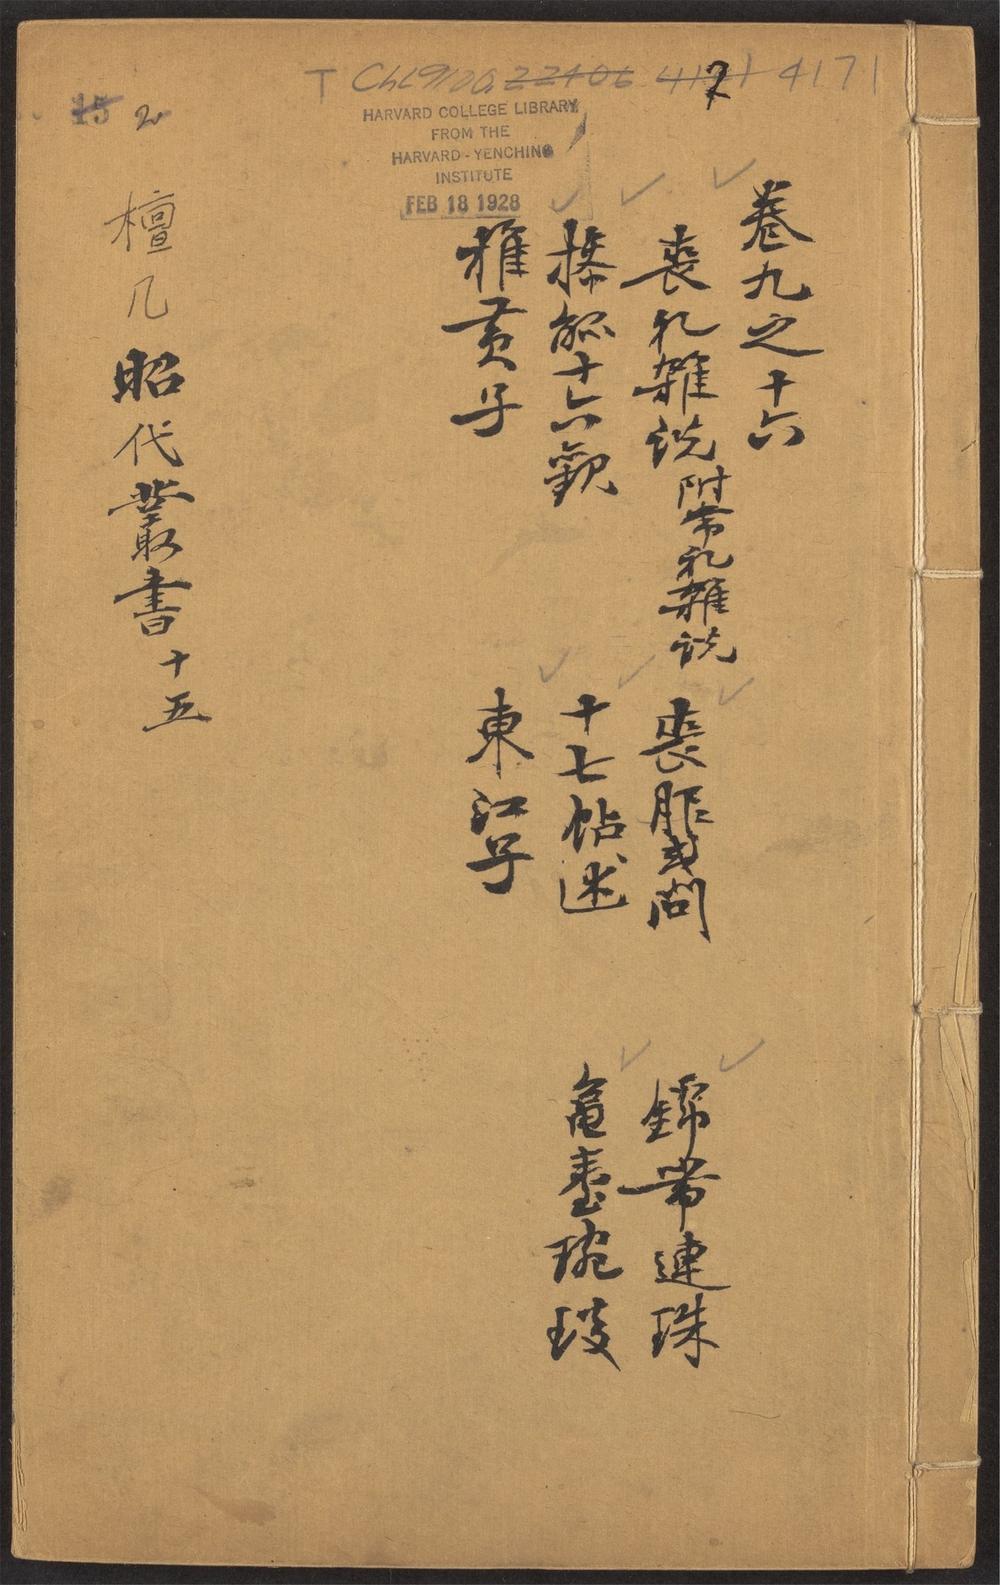 T
4171
15 2
HARVARD COLLEGE LIBRARY
FROM THE
HARVARD-YENCHING
INSTITUTE
FEB 18 1928
卷九之十六
喪礼雜说 附常礼雜说 喪服或問 錦帶連珠
操觚十六觀 十七帖述 龜臺琬琰
稚黃子 東江子
檀几昭代叢書十五